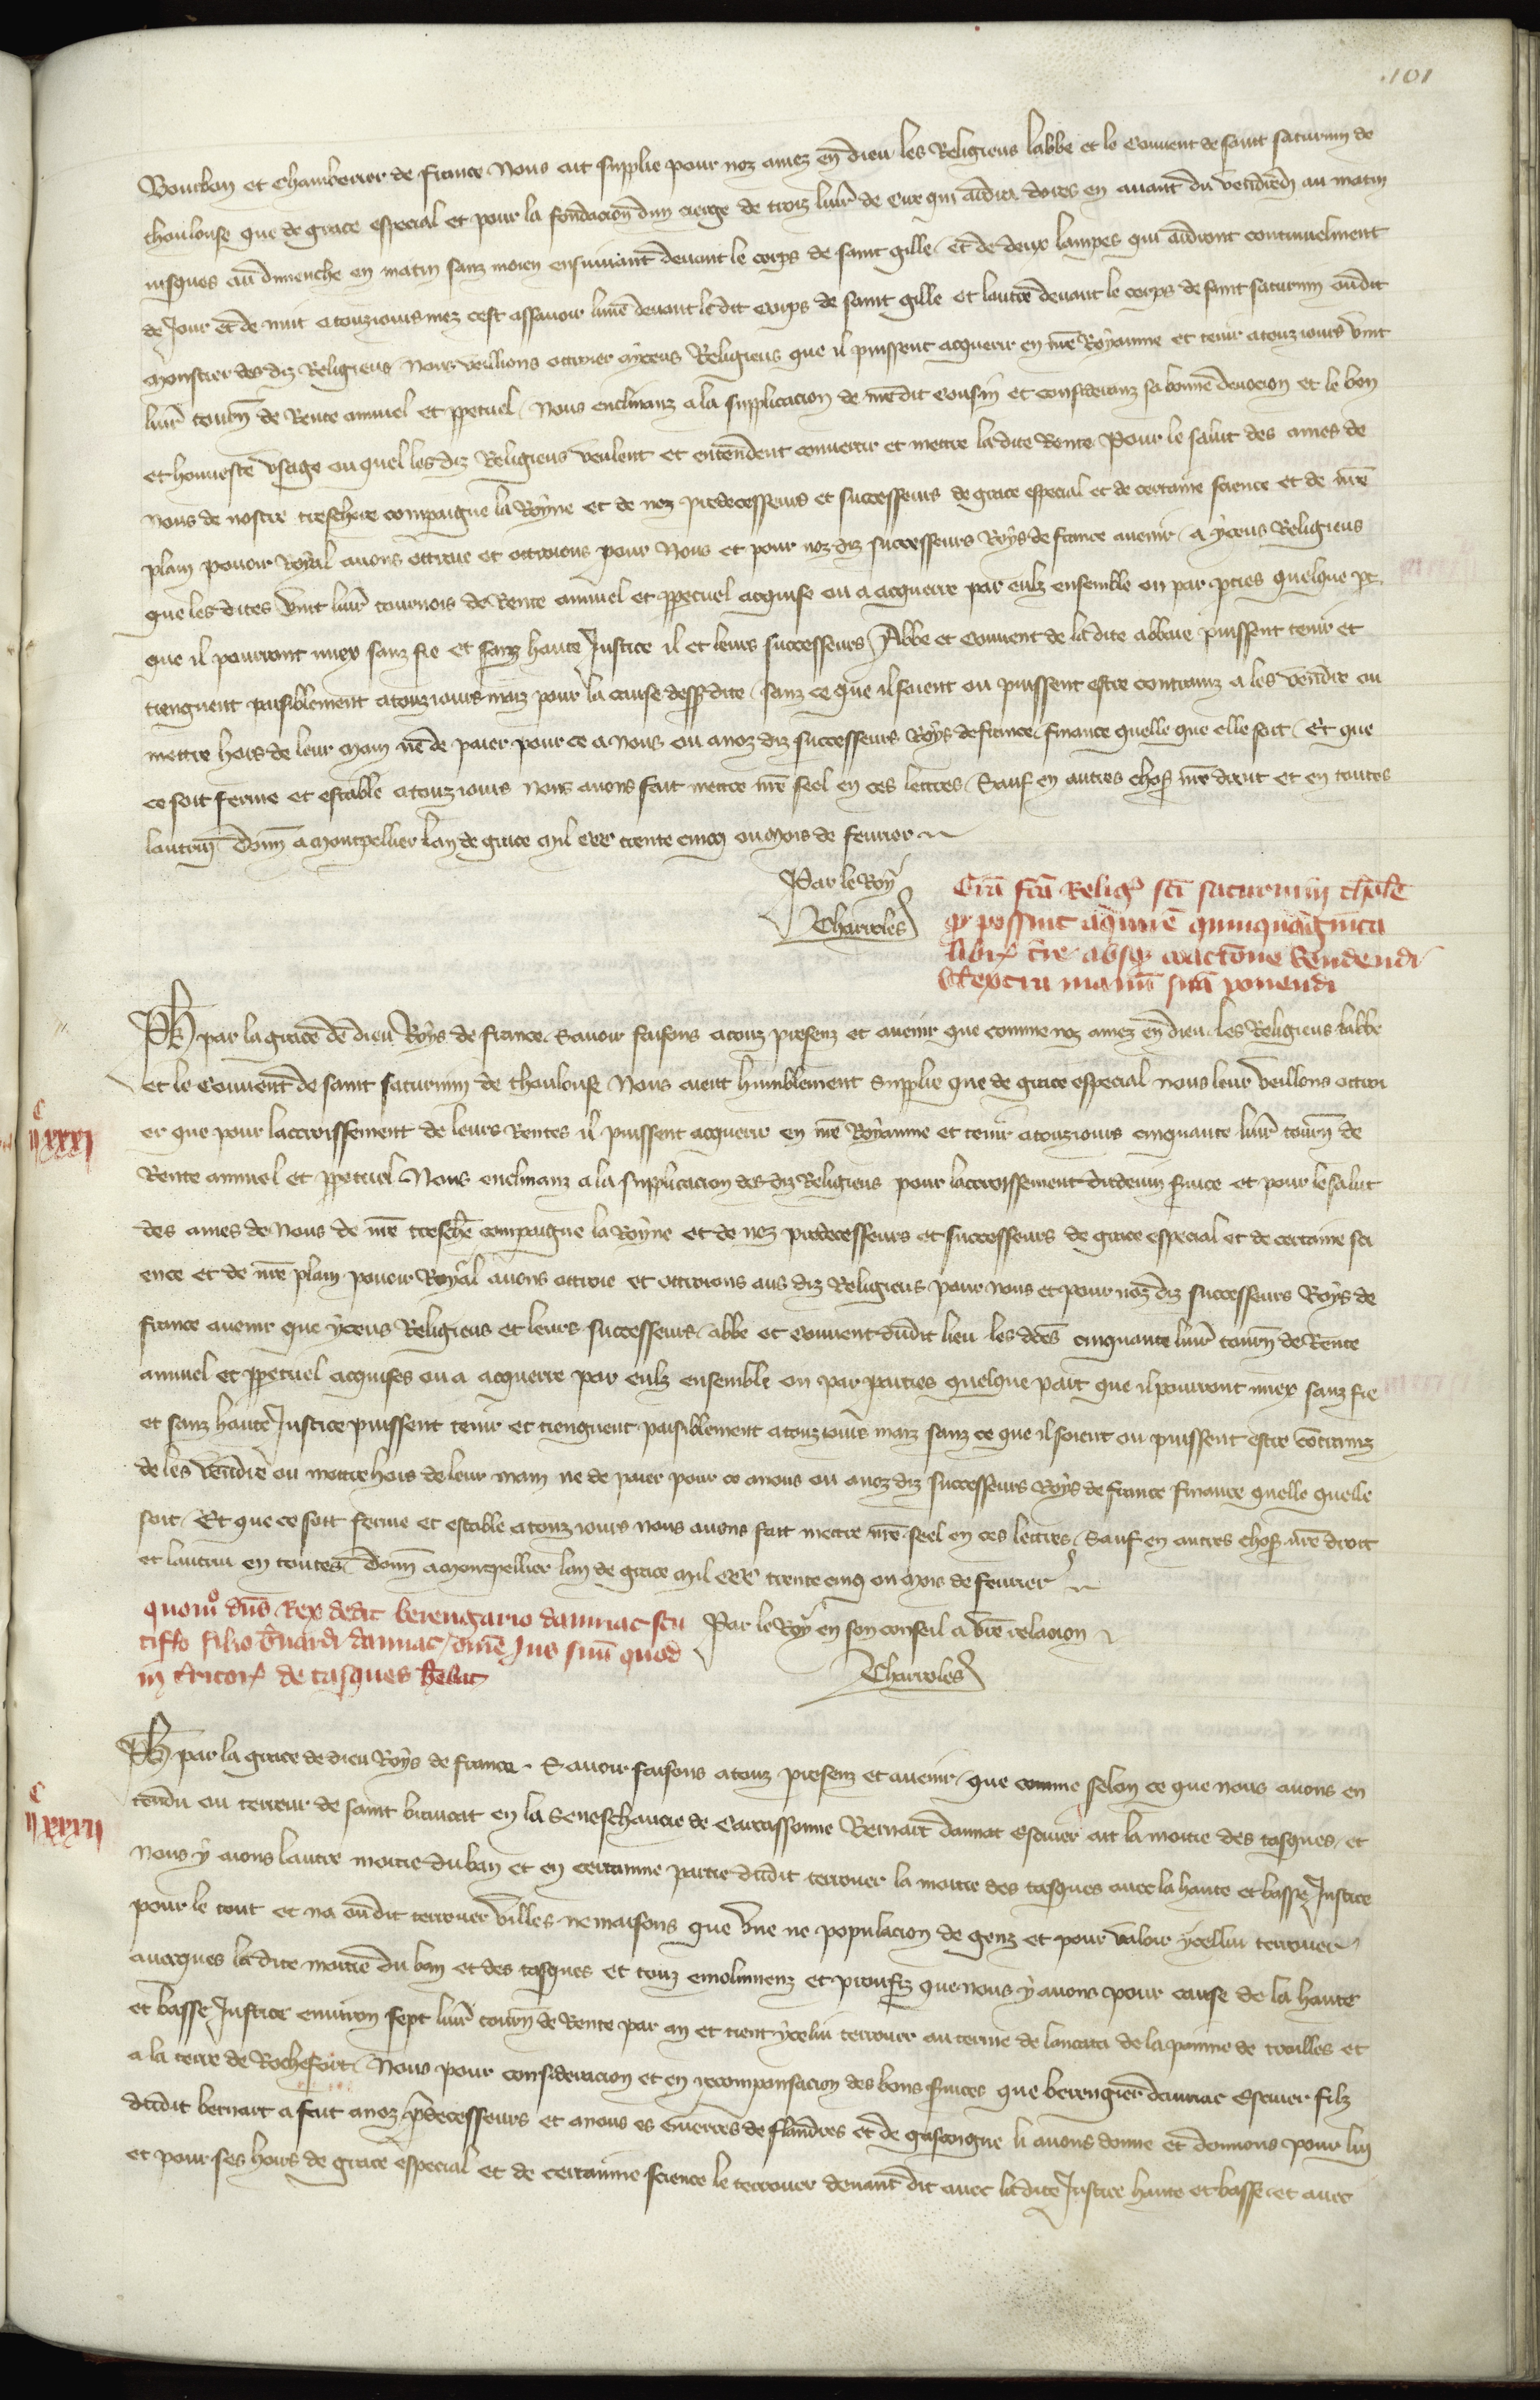 101
Bourbon et Chamberier de france Nous ait supplie pour noz amez en dieu les Religieus labbe et le Couuent de saint saturnin de
thoulouse que de grace especial et pour la fondacion dun cierge de trois liur̃ de Cire qui ardra dores en auant du vendredi au matin
iusques au dimenche en matin sanz moien ensuiuant deuant le corps de saint gille / Et de deux lampes qui ardront continuelment
de Jour et de nuit a touziours mez cest assauoir lune deuant le dit corps de saint gille et lautre deuant le corps de saint saturnin oudit
monstier des diz Religieus / Nous veillions ottroier a yceus Religieus que il puissent acquerir en nr̃e Royaume et tenir a touz iours vint
liur̃ tourn̄ de Rente annuel et ꝑpetuel / Nous enclinanz a la supplicacion de nr̃e dit cousin et consideranz sa bonne deuocion et le bon
et honneste vsage ou quel les diz Religieus veulent et entendent conuertir et mettre la dite Rente Pour le salut des ames de
nous de nostre treschere compaigne la Royne et de noz predecesseurs et successeurs de grace especial et de certaine science et de nr̃e
plain pouoir Royal auons ottroie et ottroions pour Nous et pour noz diz successeurs Roys de france auenir / a yceus Religieus
que les dites vint liur̃ tournois de Rente annuel et ꝑpetuel acquise ou a acquerre par eulz ensemble ou par ꝑties quelque ꝑt
que il pourront miex sanz fie et sanz haute Justice il et leurs successeurs Abbe et Couuent de la dite abbaie puissent tenir et
tiengnent paisiblement a touz iours maiz pour la cause dessus dite / sanz ce que il soient ou puissent estre contrainz a les vendre ou
mettre hors de leur main ne de paier pour ce a nous ou a noz diz successeurs Roys de france finance quelle que elle soit / Et que
ce soit ferme et estable a touz iours Nous auons fait mettre nr̃e seel en ces lettres / Sauf en autres chos̃ nr̃e droit et en toutes
lautruy Donn̄ a Montpellier Lan de grace Mil CCC trente cinq ou Mois de feurier
Par le Roy
Charroles
Grã fc̃a Relig̃ sc̃i saturnini thol̃e
q̃ possint acquirere quinquaginta
libr̃ t̃re absq̃ coactione vendendi
vl̃ extra manũ suã ponendi
Ph̃ par la grace de dieu Roys de france. Sauoir faisons a touz presenz et auenir que comme noz amez en dieu les Religieus labbe
et le Couuent de saint saturnin de thoulouse Nous aient humblement supplie que de grace especial nous leur veillons ottroi
C
II XXXI
er que pour laccroissement de leurs Rentes il puissent acquerir en nr̃e Royaume et tenir a touziours cinquante liur̃ tourn̄ de
Rente annuel et ꝑpetuel Nous enclinanz a la supplicacion des diz Religieus pour laccroissement du deuin seruice et pour le salut
des ames de Nous de nr̃e treschr̃e compaigne la Royne et de noz predecesseurs et successeurs de grace especial et de certaine sci
ence et de nr̃e plain pouoir Royal auons ottroie et ottroions aus diz Religieus pour nous et pour noz diz successeurs Roys de
france auenir que yceus Religieus et leurs successeurs / abbe et Couuent dudit lieu les dc̃es cinquante liur̃ tourn̄ de Rente
annuel et ꝑpetuel acquises ou a acquerre par eulz ensemble ou par parties quelque part que il pourront miex sanz fie
et sanz haute Justice puissent tenir et tiengnent paisiblement a touz iours maiz sanz ce que il soient ou puissent estre cõtrainz
de les vendre ou mettre hors de leur main ne de paier pour ce a nous ou a noz diz successeurs Roys de france finance quelle quelle
soit / Et que ce soit ferme et estable a touz iours nous auons fait mettre nr̃e seel en ces lettres / Sauf en autres chos̃ nr̃e droit
et lautrui en toutes Donn̄ a Montpellier lan de grace Mil CCC trente cinq ou Mois de feurier
Par le Roy en son conseil a vr̃e relacion
Charroles
quom̊ dñs Rex dedit berengario dauniac scu
tiff̃o filio b̃nardi dauniac / om̃e Jus suũ quod
in t̃ritor̃ de tasques h̃ebat
Ph̃ par la grace de dieu Roys de france . Sauoir faisons a touz presenz et auenir / que comme selon ce que nous auons en
C
II XXXII
tendu ou terrour de saint en la Seneschaucie de Carcassonne Bernart dauniac Escuier ait la moitie des tasques / et
nous y aions lautre moitie du ban et en certainne partie dudit terrouer la moitie des tasques auec la haute et basse Justice
pour le tout et na oudit terrouer villes ne maisons que vne ne populacion de genz et pour valoir ycellui terrouer
auecques la dite moitie du ban et des tasques et touz emolumenz et proufiz que nous y auons pour cause de la haute
et basse Justice enuiron sept liur̃ tourn̄ de Rente par an et tient ycelui terrouer au terme de de la pomme de et
a la terre de Rochefort / Nous pour consideracion et en recompensacion des bons seruices que berengier dauniac Escuier filz
dudit bernart a fait a noz p̃decesseurs et a nous es Guerres de flandres et de gascoigne li auons donne et donnons pour luy
et pour ses hoirs de grace especial et de certainne science le terrouer deuant dit auec la dite Justice haute et basse et auec